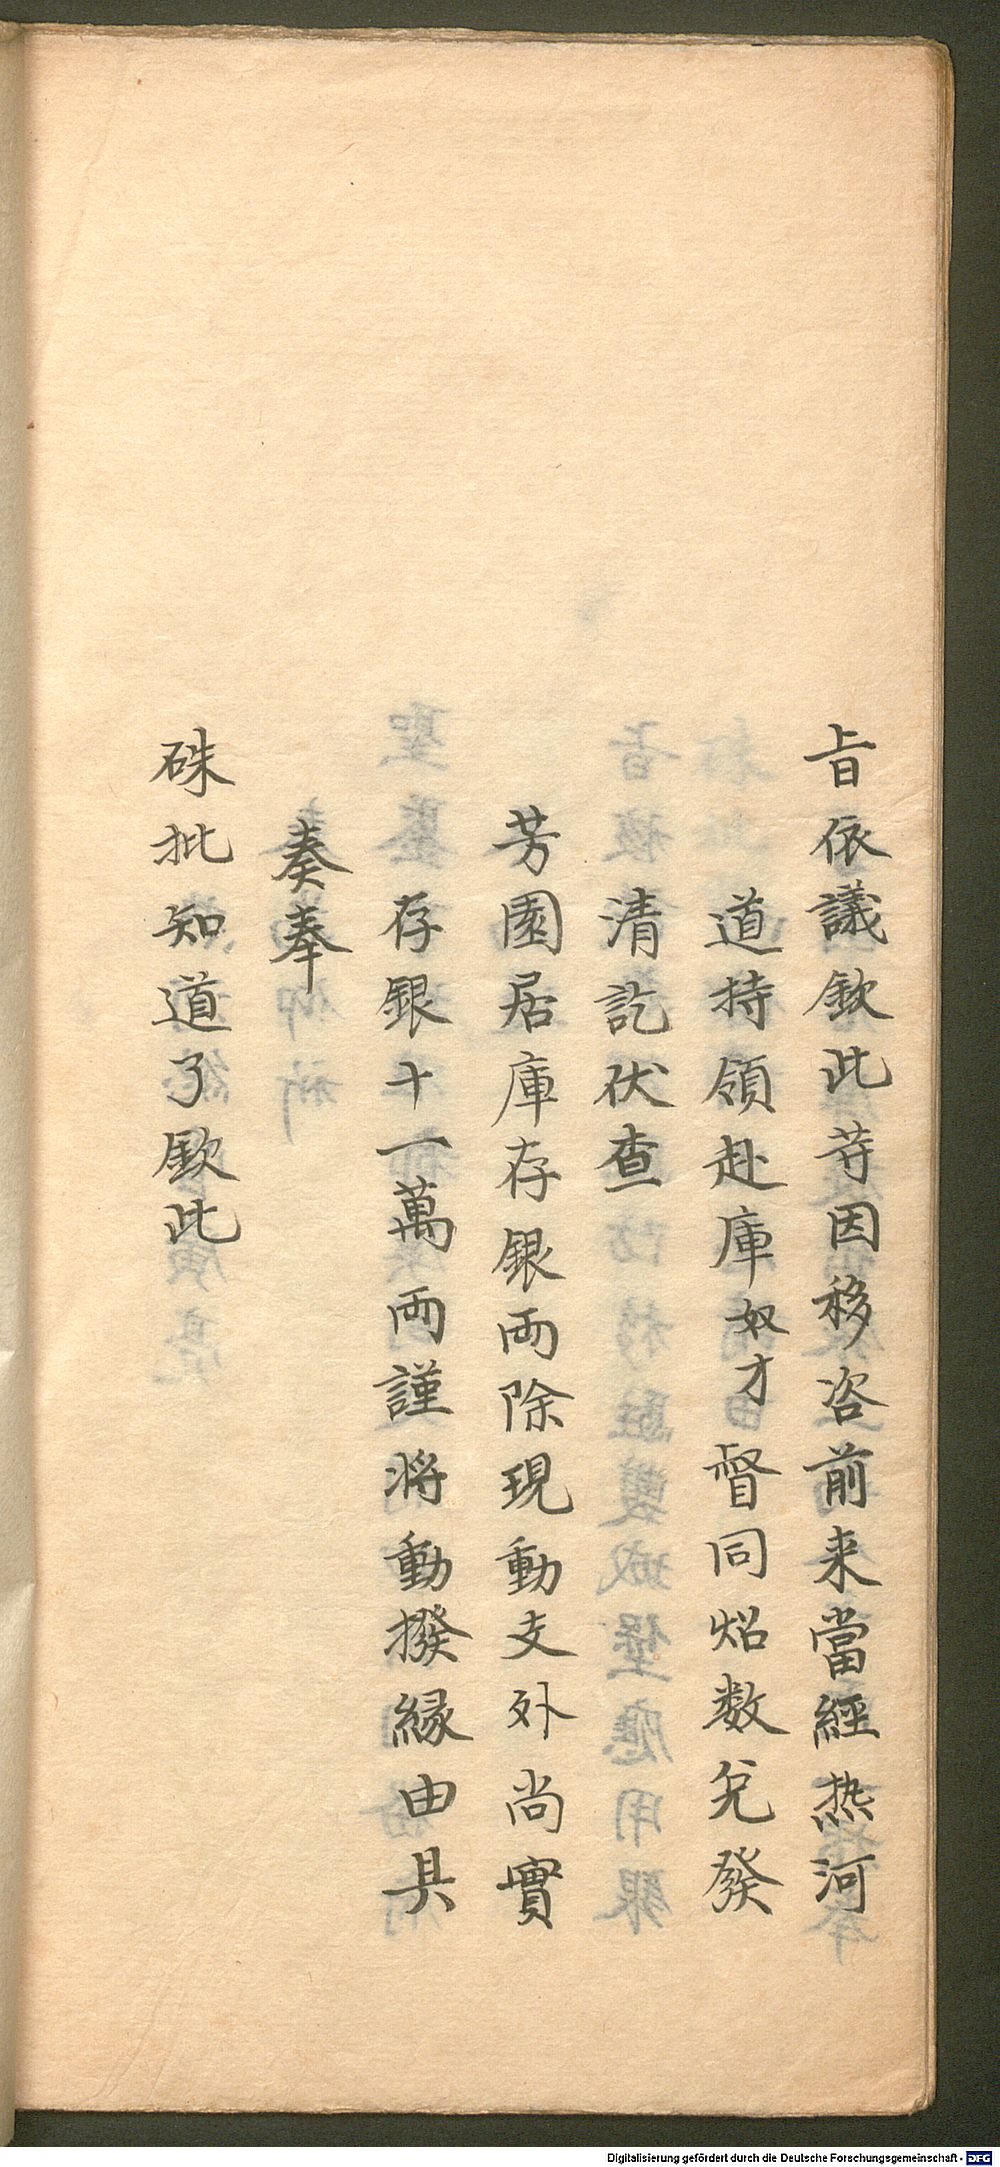 旨依議欽此等因移咨前来當經热河
道持領赴庫奴才督同炤数兌發
清訖伏查
芳園居庫存銀両除現動支外尚實
存銀十一萬両謹将動撥緣由具
奏奉
硃批知道了欽此
Digitalisierung gefördert durch die Deutsche Forschungsgemeinschaft - DFG